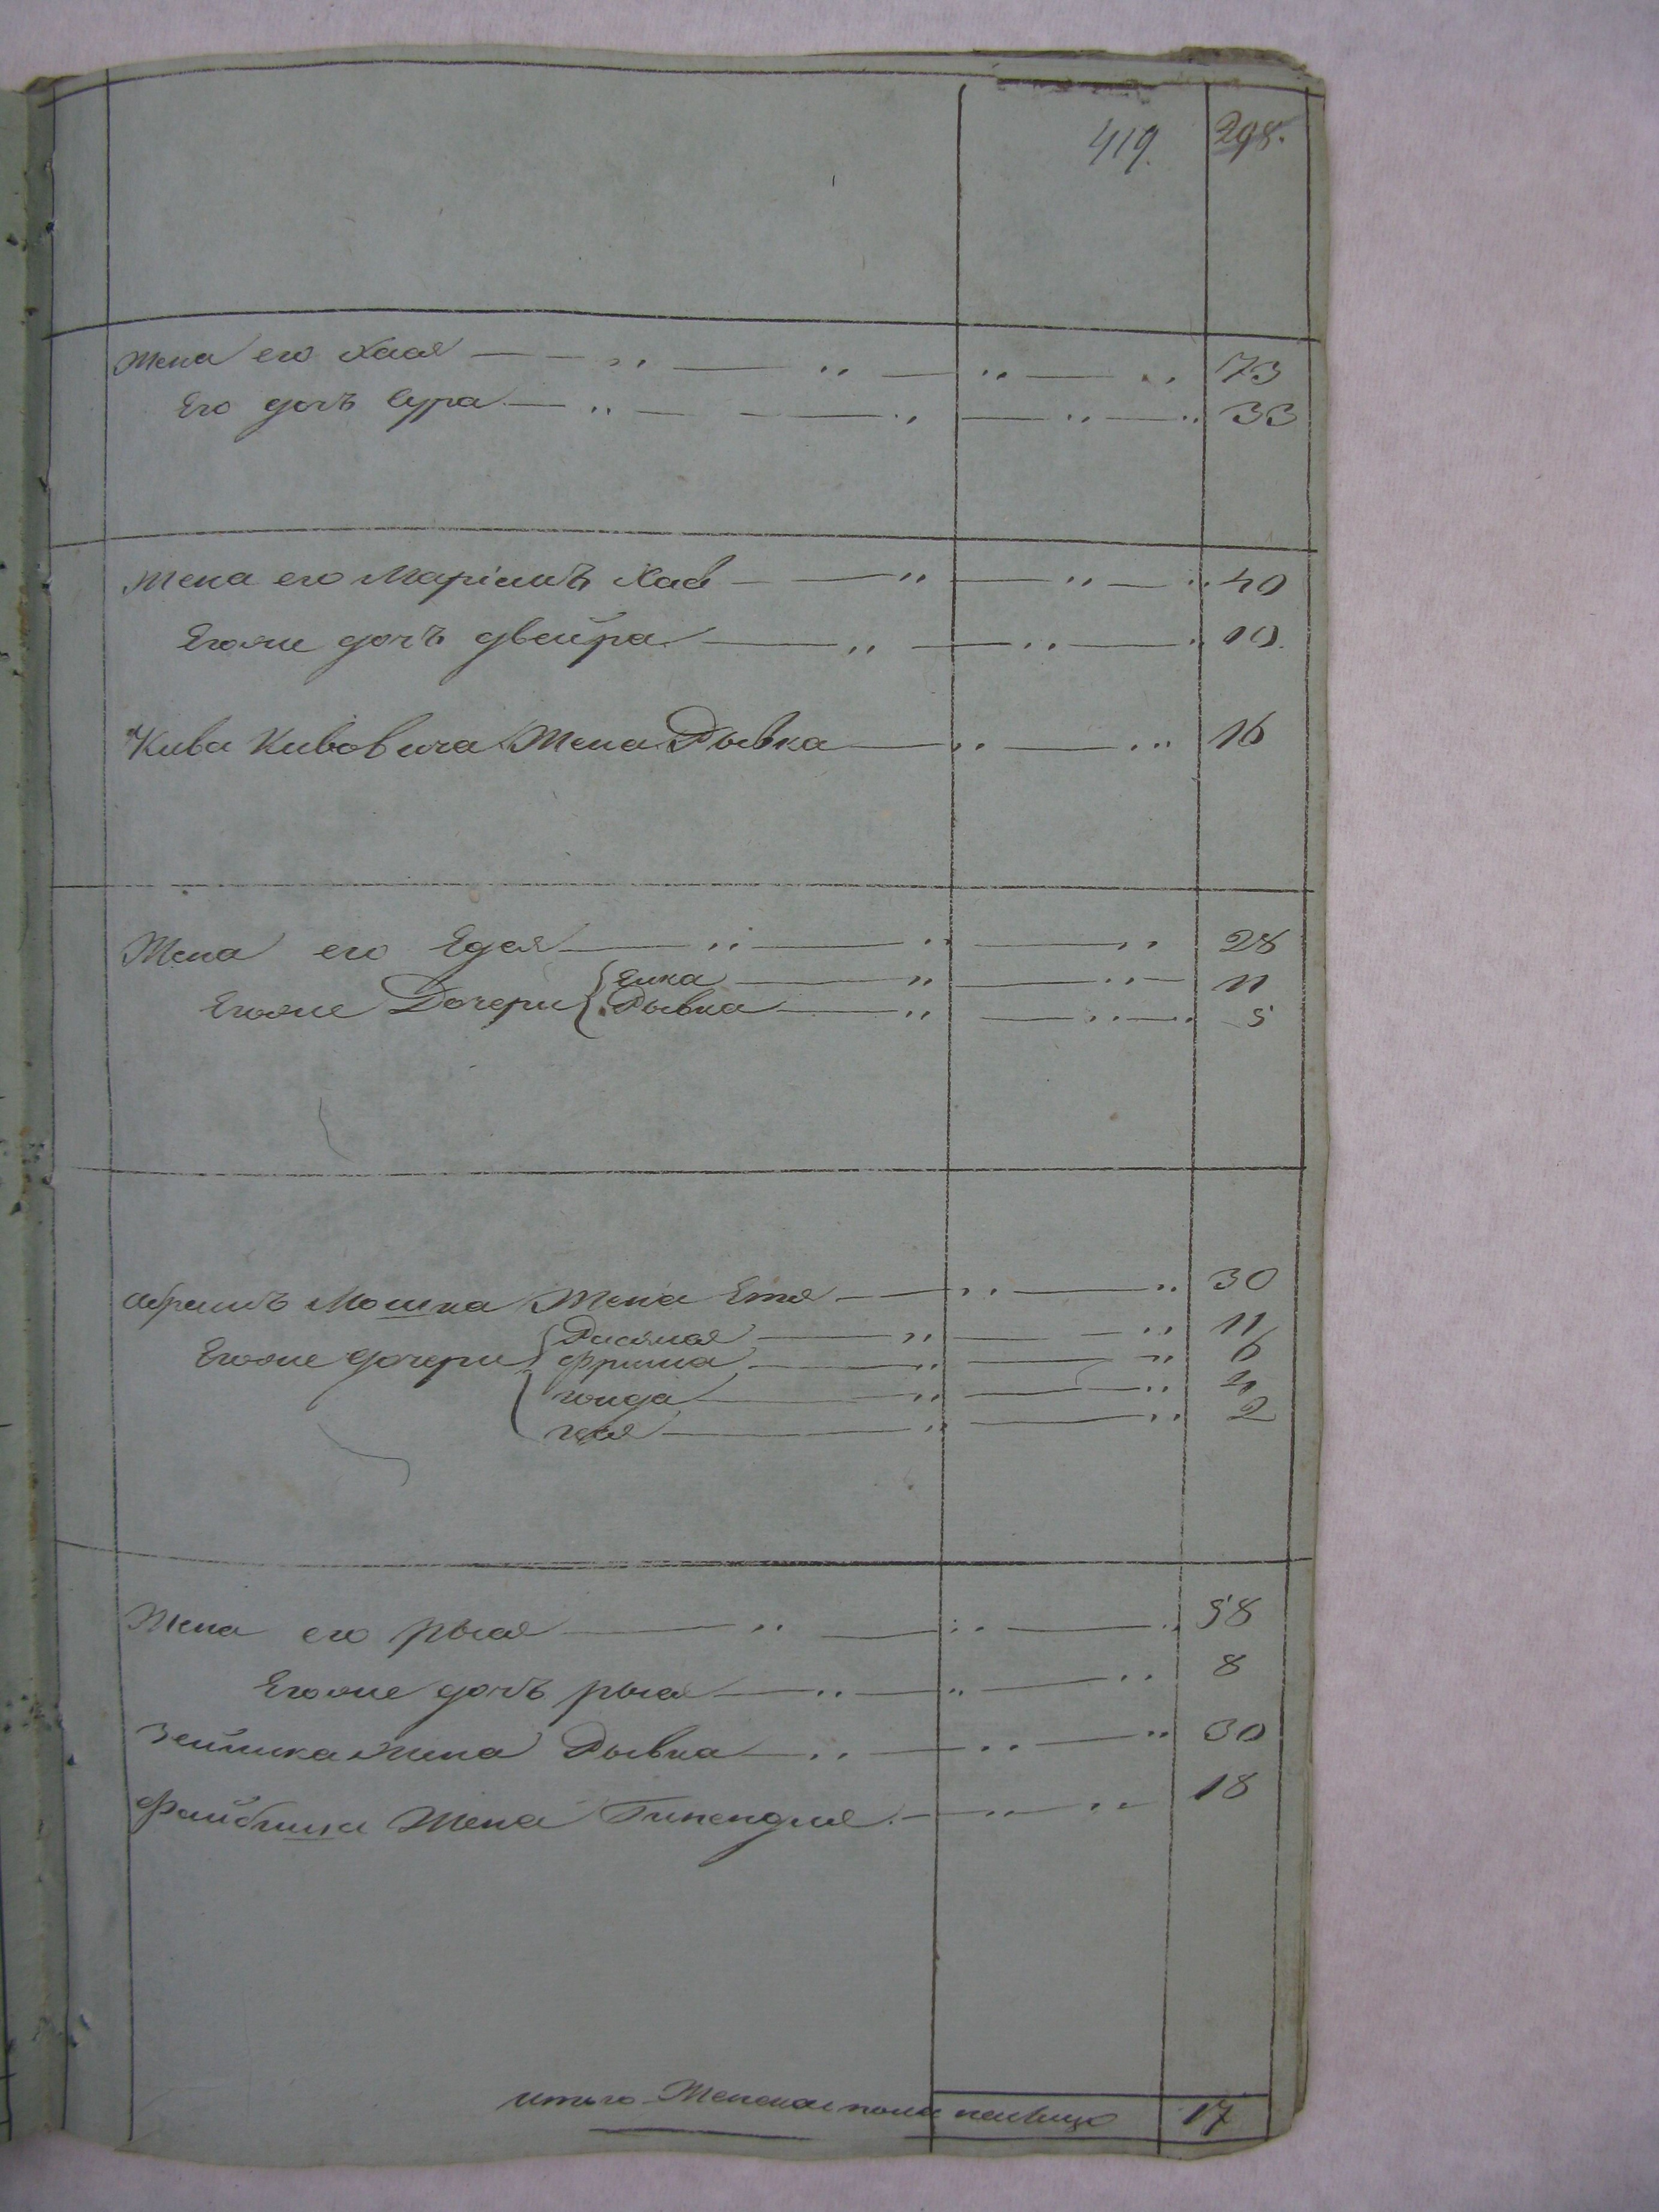 419. 298.
Жена его Хая — „ — „ — „ — „ 73
Его дочь Сура — „ — — „ — „ — „ 33
Жена его Маріимъ Хая — — „ — „ — „ 40
Егоже дочъ двейра — „ — „ — „ 10.
Кива Кивовича Жена Рывка — „ — „ 16
Жена его Едея — „ — „ — „ 28
Егоже Дочери { Енка — „ — „ — 11
Рывка — „ — „ — „ 5
Абрамъ Мошка Жена Етя — „ — „ 30
Егоже дочери { — „ — „ 11
Фрима — „ — „ 6
гинда — „ — „ 4
— „ — „ 2
Жена его рыся — „ — „ — „ 58
Егоже дочъ рыся — „ — „ — „ 8
жена Рывка — „ — „ — „ 30
Файбиша Жена — „ „ 18
итого Женска пола налицо 17